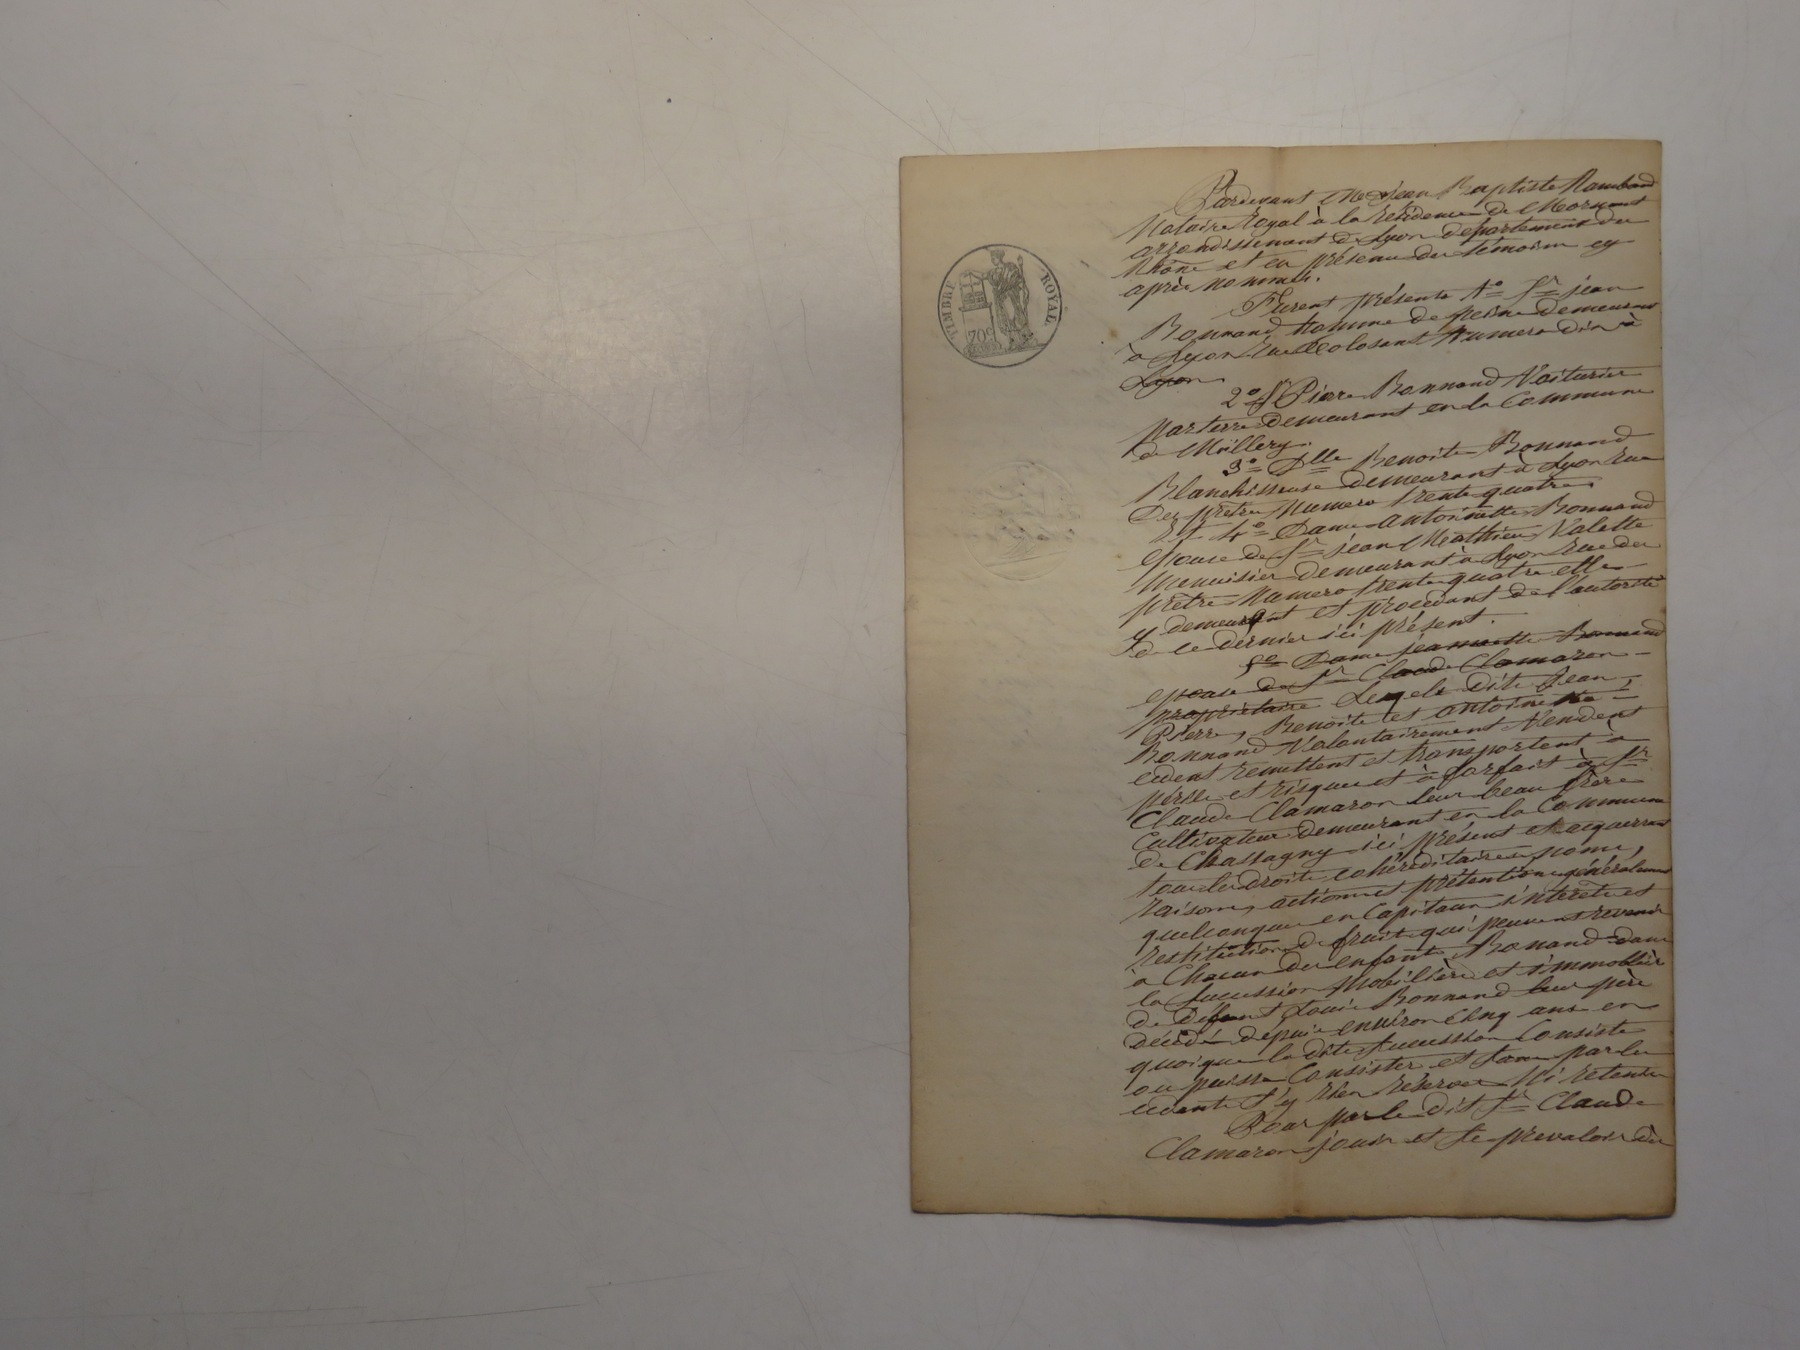 TIMBRE ROYAL
70c
Pardevant Me Jean Baptiste Rambaud
Notaire Royal à la résidence de Mornant
arrondissement de Lyon département du
Rhône et en présence des témoins cy
après nommés.
Furent présents 1º Sr jean
Bonnand homme de peine demeurant
à Lyon rue Numero dix à
Lyon
2º Sr Pierre Bonnand Voiturier
par terre demeurant en la Commune
de Millery.
3º Dlle Benoite Bonnand
Blanchisseuse demeurant à Lyon rue
Des prêtres Numero trente quatre
Et 4º Dame antoinette Bonnand
épouse de Sr jean Matthieu Valette
menuisier demeurant à Lyon rue des
prêtres Numero trente quatre elle
y demeurant et procedant de l'autorité
de ce dernier ici présent.
5º Dame jeannette Bonnand
épouse de Sr Claude Clamaron
propriétaire Lesquels dits Jean,
Pierre, Benoite et antoinette
Bonnand Volontairement Vendent
cèdent remettent et transportent à
périls et risques et à forfait à Sr
Claude Clamaron leur beau frère
Cultivateur demeurant en la Commune
de Chassagny ici présent et acquerrant
tous les droits cohéréditaires noms,
raisons, actions et prétentions généralement
quelconques en Capitaux intérêts et
restitution de fruits qui peuvent revenir
à Chacun des enfants Bonand dans
la succession Mobilière et immobilière
de défunt Louis Bonnand leur père
décédé depuis environ cinq ans en
quoique la dite succession Consiste
ou puisse Consister et sans par les
cédants s'y rien réserver Ni retenir
Pour par le dit Sr Claude
Clamaron jouir et se prevaloir des